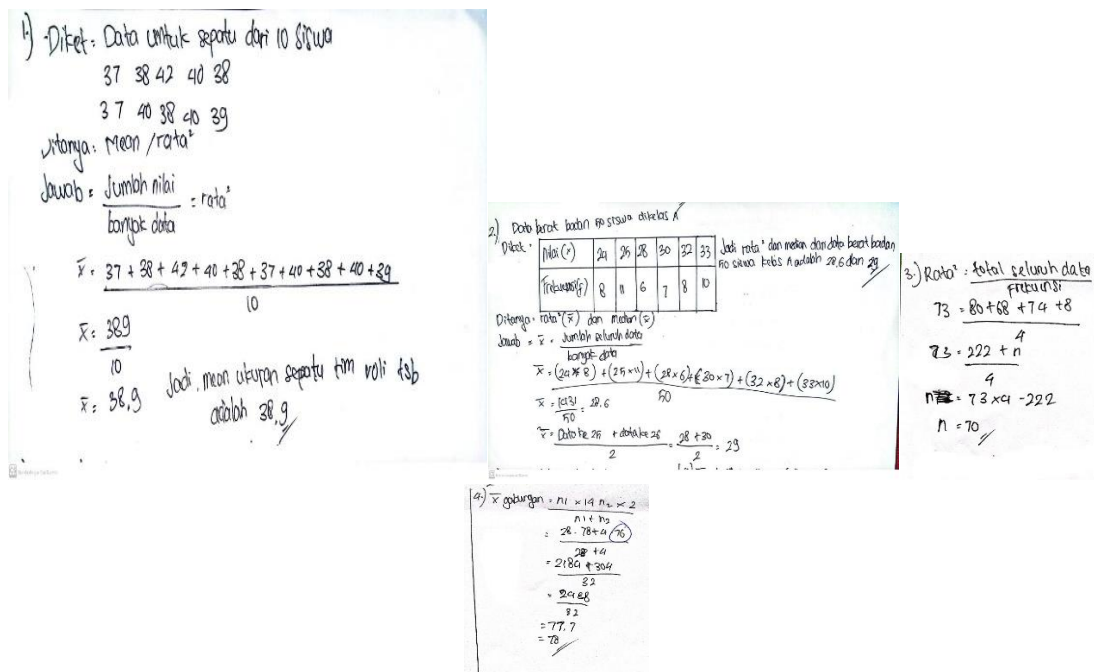 1.) Diket: Data untuk sepatu dari 10 Siswa
37 38 42 40 38
37 40 38 40 39
Ditanya: Mean /rata²
Jawab = Jumlah nilai / banyak data = rata²
x̄ = 37 + 38 + 42 + 40 + 38 + 37 + 40 + 38 + 40 + 39 / 10
x̄ = 389 / 10
x̄ = 38,9
Jadi, mean ukuran sepatu tim voli tsb
adalah 38,9
2.) Data berat badan 50 siswa dikelas A
Diket:
Nilai (x) 24 25 28 30 32 33
Frekuensi(f) 8 11 6 7 8 10
Jadi rata² dan median dari data berat badan
50 siswa kelas A adalah 28,6 dan 29
Ditanya: rata² (x̄) dan median (x̃)
Jawab = x̄ = Jumlah seluruh data / banyak data
x̄ = (24 × 8) + (25 × 11) + (28 × 6) + (30 × 7) + (32 × 8) + (33 × 10) / 50
x̄ = 1431 / 50 = 28,6
x̃ = Data ke 25 + data ke 26 / 2 = 28 + 30 / 2 = 29
3.) Rata² = total seluruh data / Frekuensi
73 = 80 + 68 + 74 + 8 / 4
73 = 222 + n / 4
n = 73 × 4 - 222
n = 70
4.) x̄ gabungan = n1 × 14 n2 × 2 / n1 + n2
= 28 . 78 + 4 (76) / 28 + 4
= 2184 + 304 / 32
= 2488 / 32
= 77,7
= 78